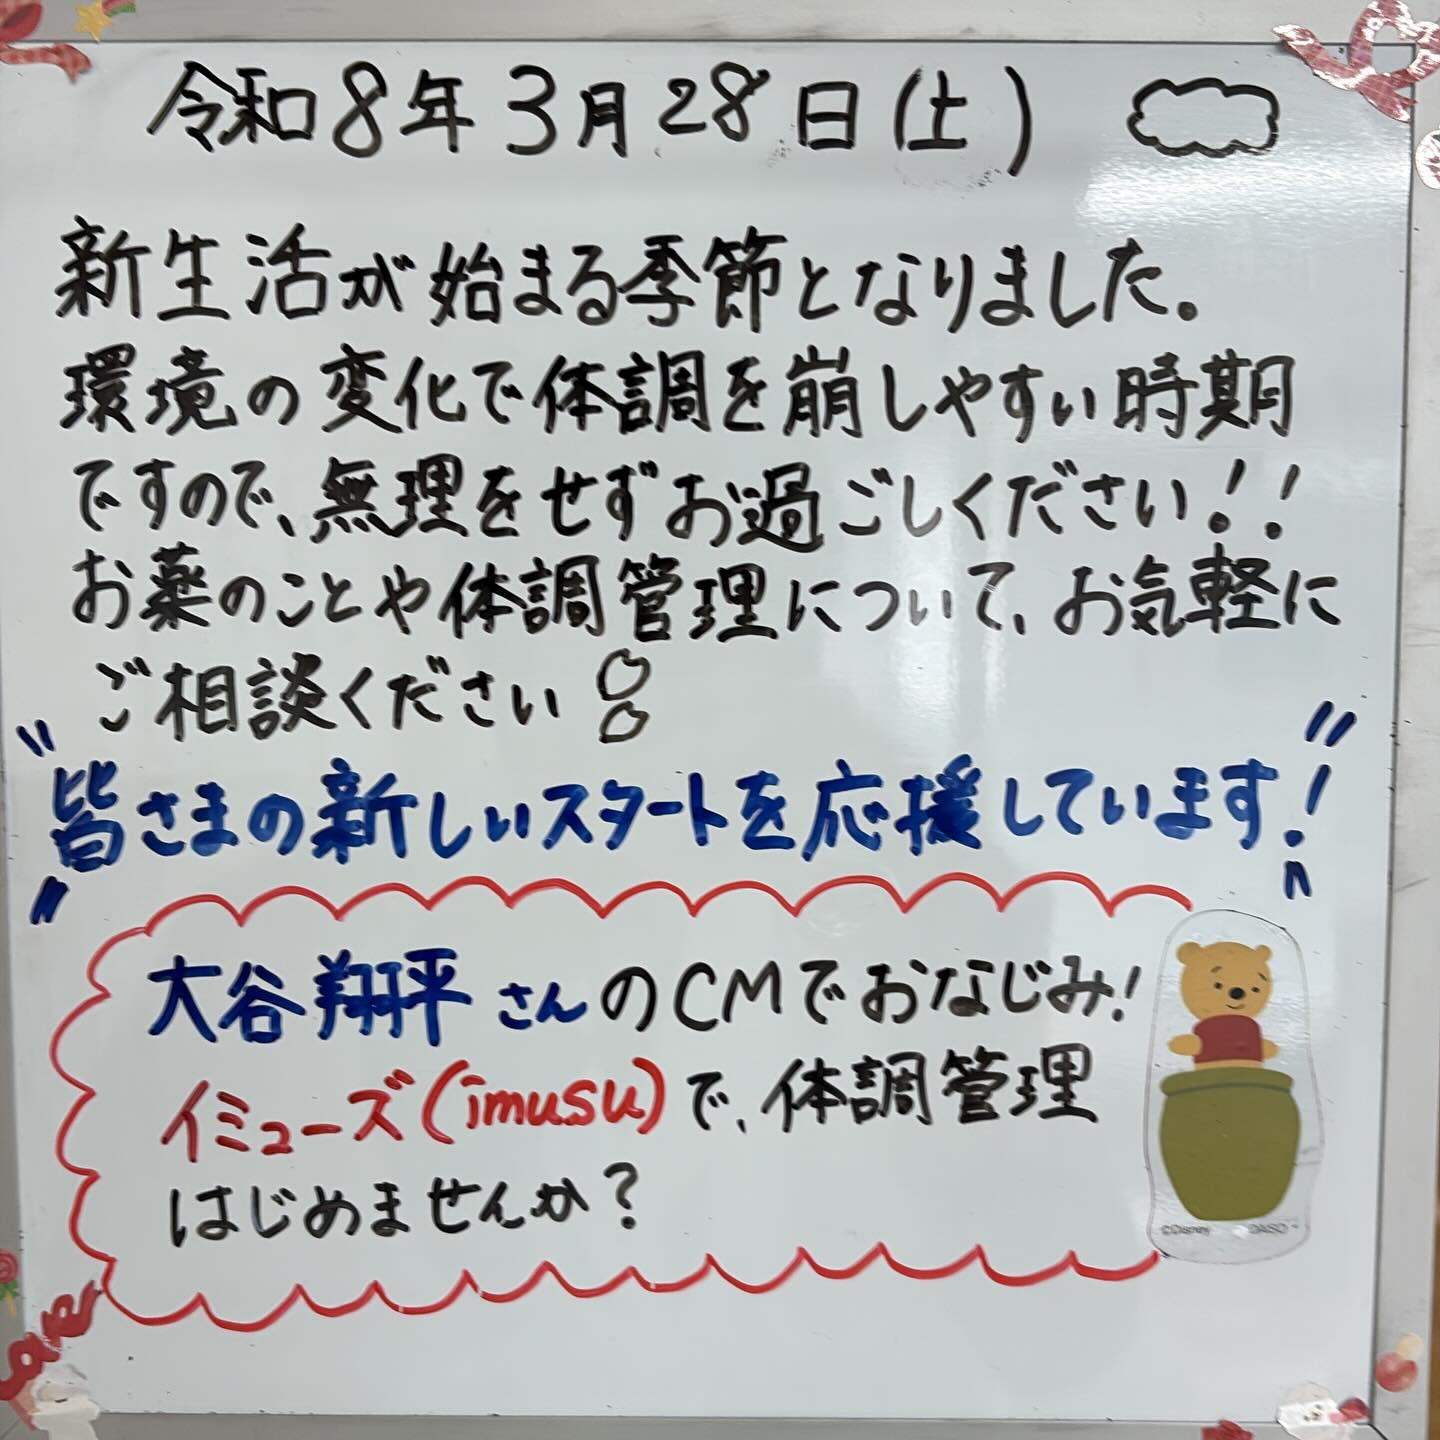 令和8年3月28日(土)
新生活が始まる季節となりました。
環境の変化で体調を崩しやすい時期
ですので、無理をせずお過ごしください!!
お薬のことや体調管理について、お気軽に
ご相談ください
"皆さまの新しいスタートを応援しています!"
大谷翔平さんのCMでおなじみ!
イミューズ(imusu)で、体調管理
はじめませんか?
©Disney DAISO